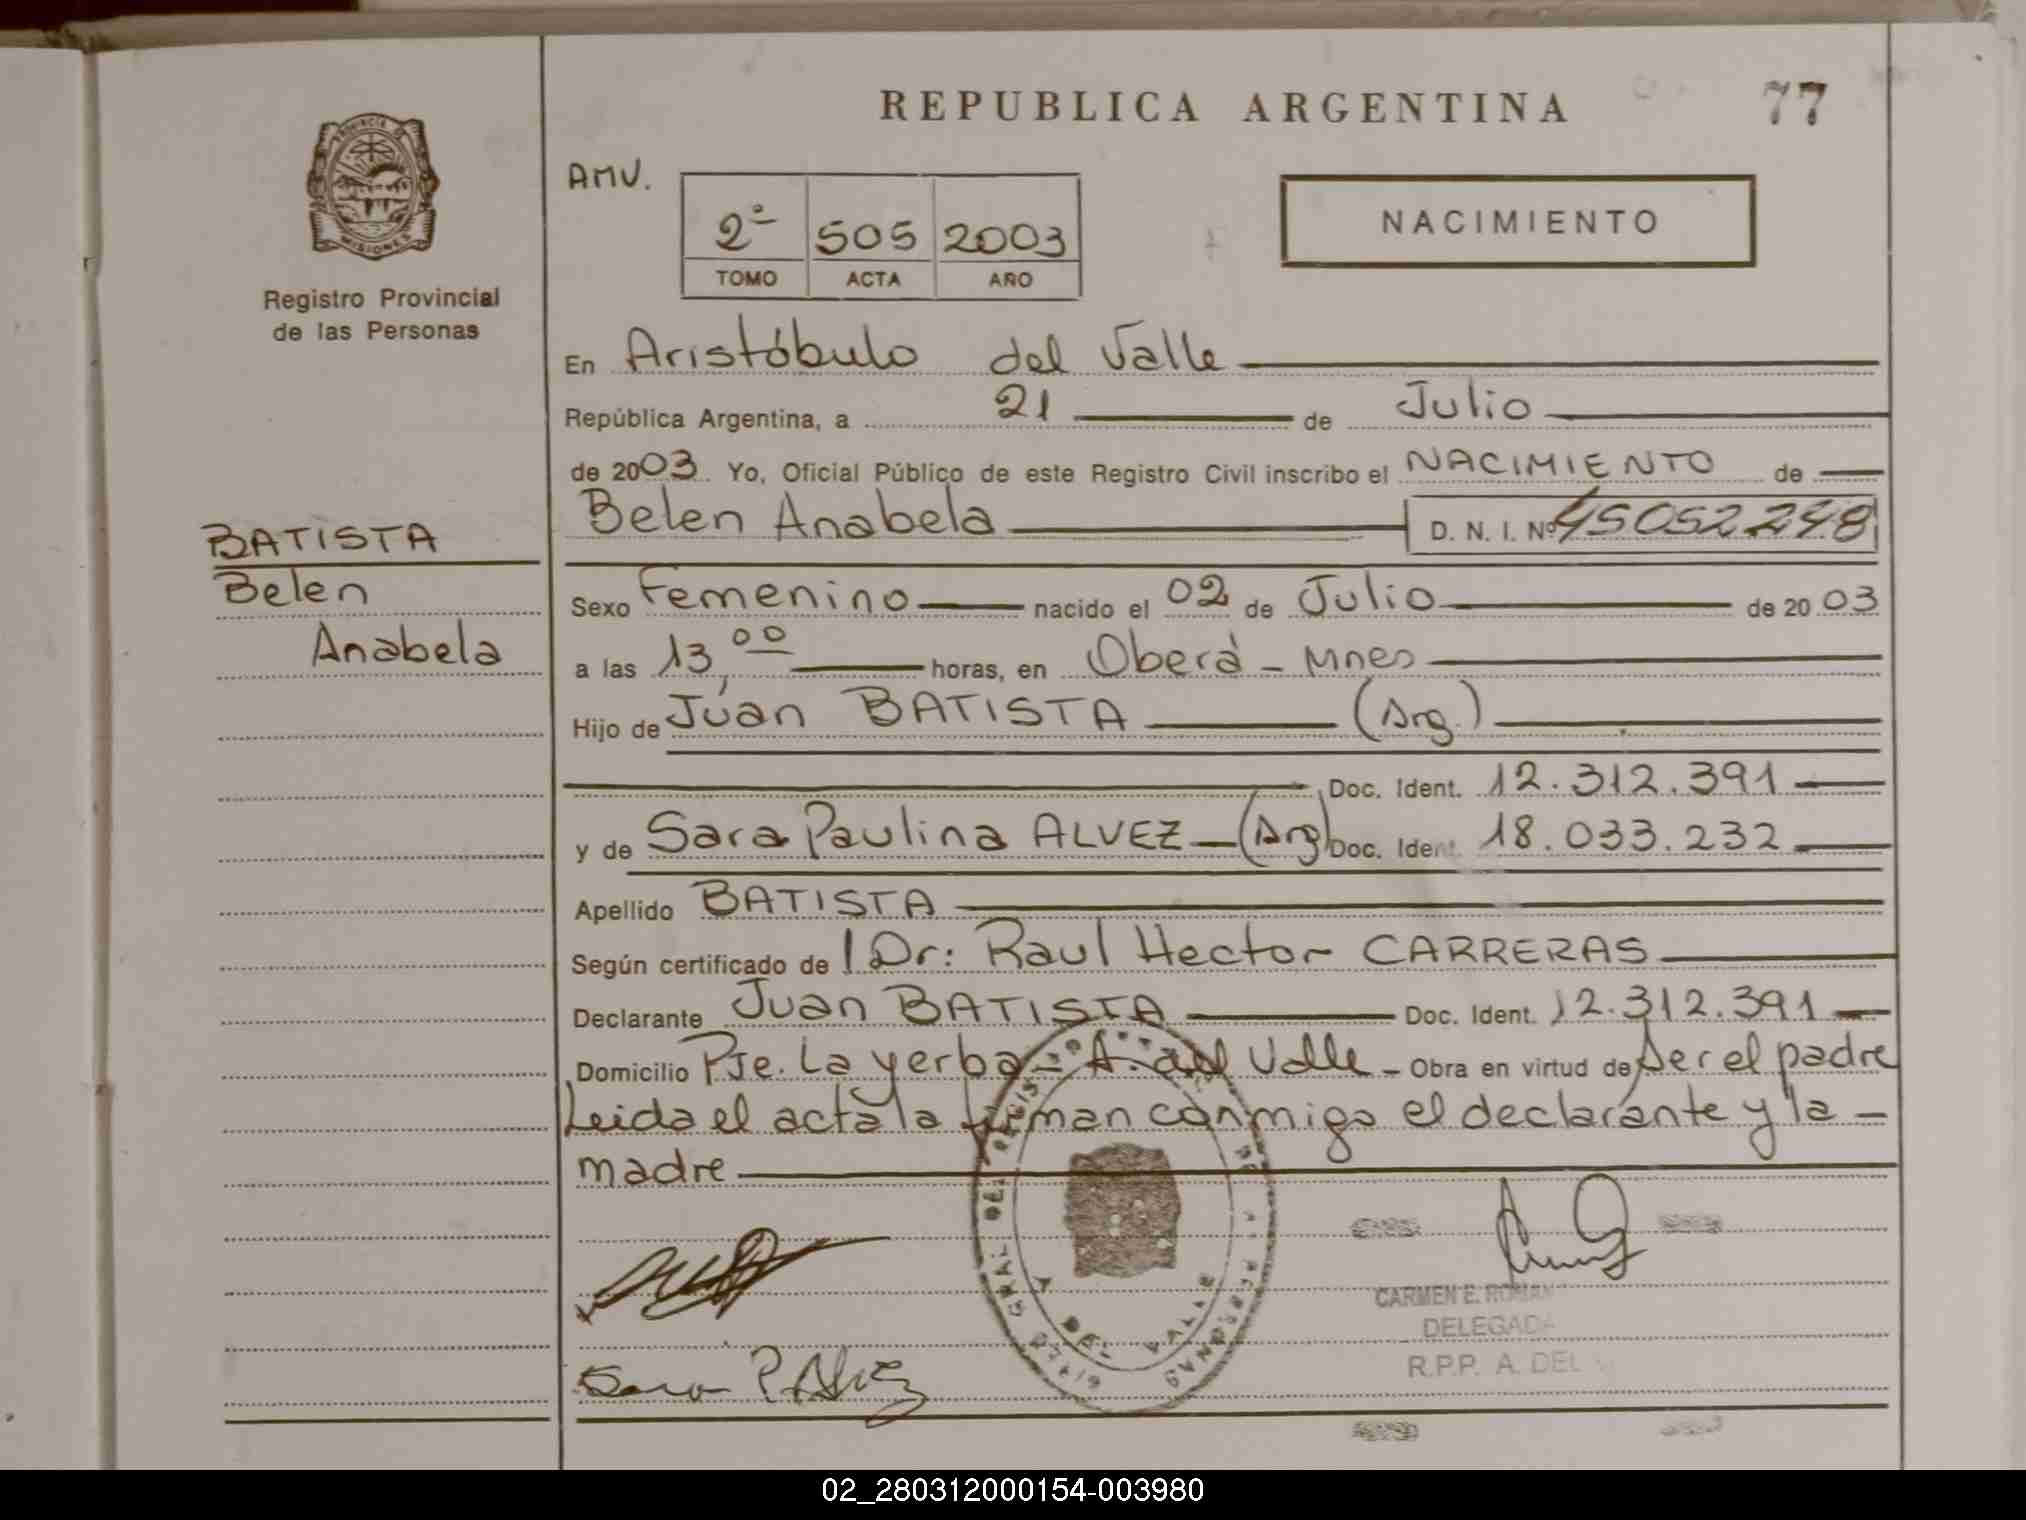 REPUBLICA ARGENTINA
77
PROVINCIA DE
MISIONES
Registro Provincial
de las Personas
AMV.
2º 505 2003
TOMO ACTA AÑO
NACIMIENTO
En Aristóbulo del Valle
República Argentina, a 21 de Julio
de 2003 Yo, Oficial Público de este Registro Civil inscribo el NACIMIENTO de
Belen Anabela D. N. I. Nº 45052248
BATISTA
Belen
Anabela
Sexo Femenino nacido el 02 de Julio de 2003
a las 13,00 horas, en Oberá - Mnes
Hijo de Juan BATISTA (Arg.)
Doc. Ident. 12.312.391
y de Sara Paulina ALVEZ (Arg) Doc. Ident. 18.033.232
Apellido BATISTA
Según certificado de Dr: Raul Hector CARRERAS
Declarante Juan BATISTA Doc. Ident. 12.312.391
Domicilio Pje. La yerba - A. del Valle - Obra en virtud de ser el padre
Leida el acta la firman conmigo el declarante y la
madre
Sara P. Alvez
CARMEN E.
DELEGADA
R.P.P. A. DEL
02_280312000154-003980